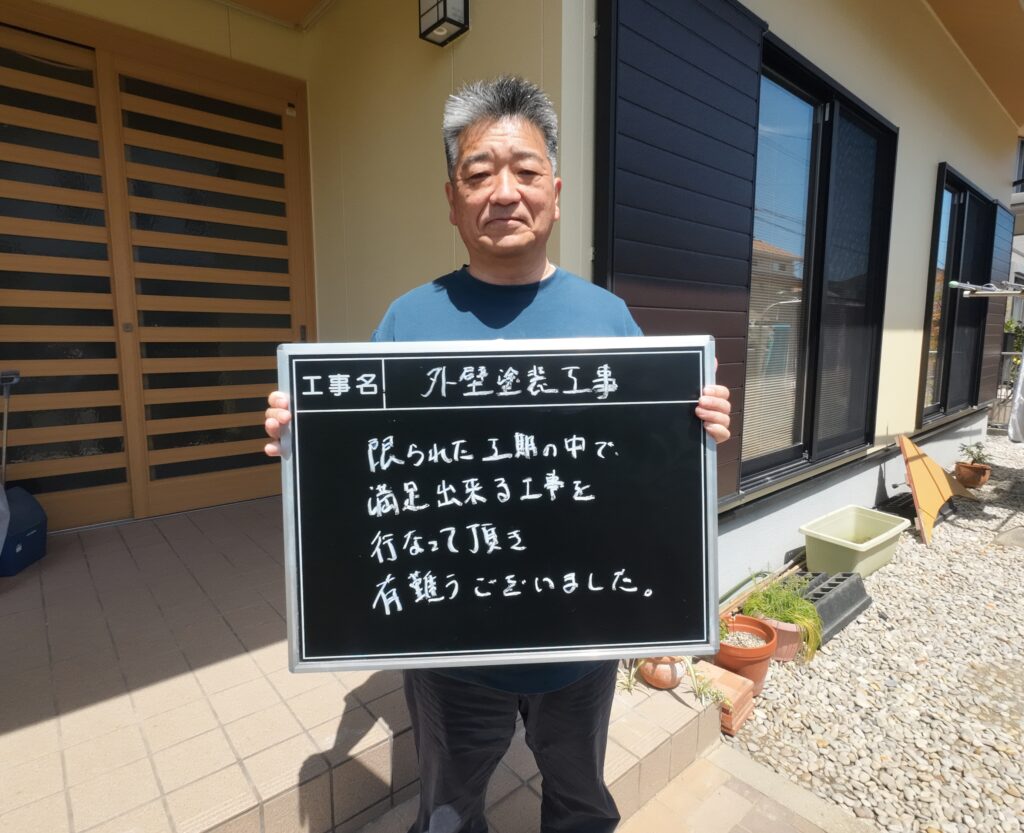 工事名 外壁塗装工事
限られた工期の中で、
満足出来る工事を
行なって頂き
有難うございました。